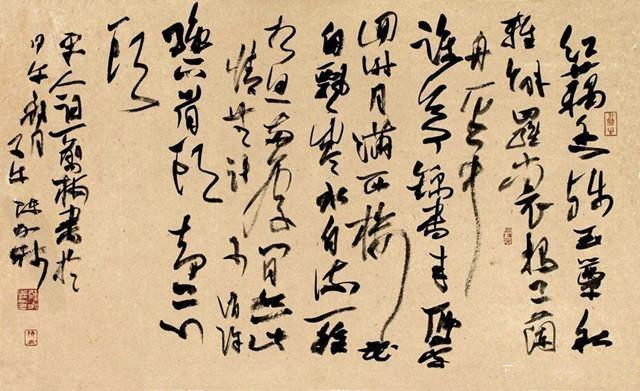 紅藕香殘玉簟秋
輕解羅裳獨上蘭
舟雲中
誰寄錦書来雁字
回時月滿西樓花
自飄零水自流一種
相思兩處閒愁此
情無計可消除
纔下眉頭却上心
頭
宋人詞一剪梅書於
秋月